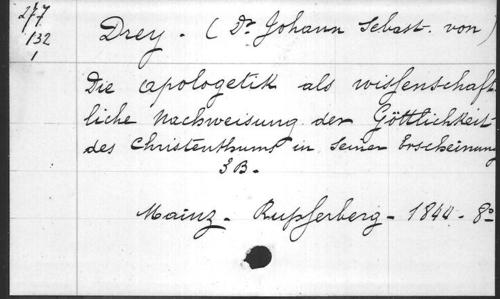 277
132
1
Drey. (Dr Johann Sebast. von)
Die Apologetik als wissenschaft
liche Nachweisung der Göttlichkeit
des Christenthums in seiner Erscheinung
3 B.
Mainz - Kupferberg - 1844 - 8º